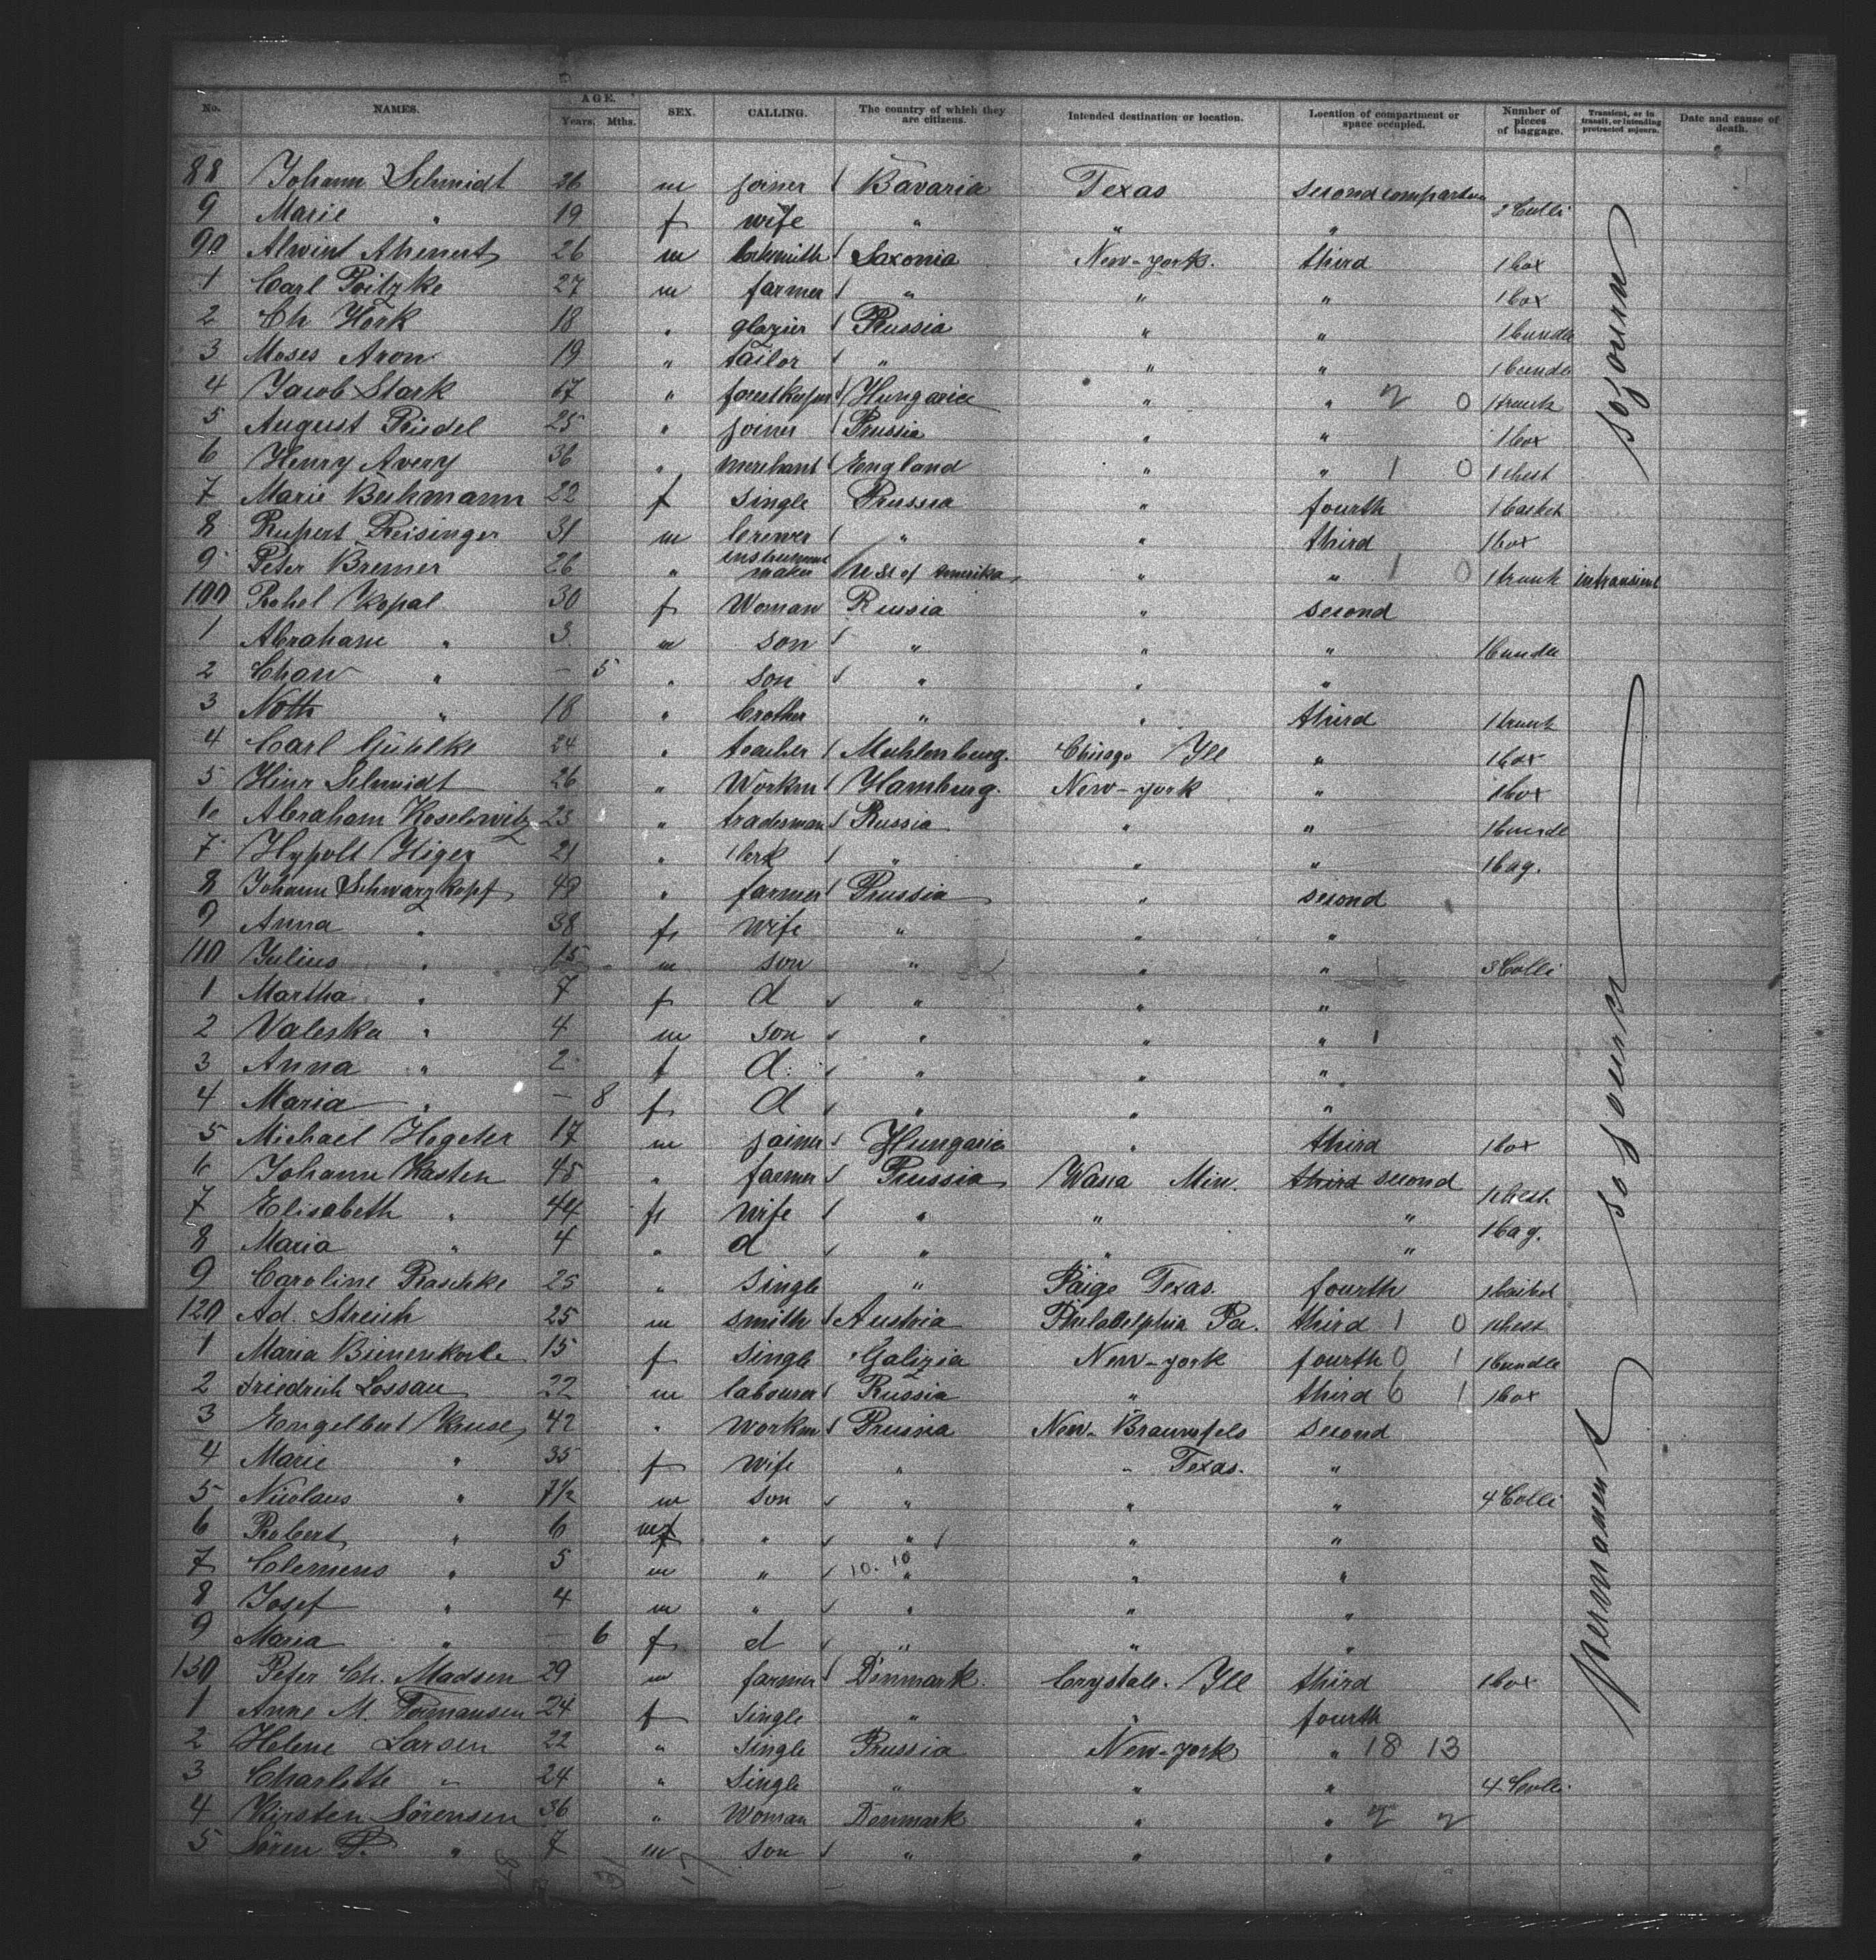 No. NAMES. AGE. Years. Mths. SEX. CALLING. The country of which they are citizens. Intended destination or location. Location of compartment or space occupied. Number of pieces of baggage. Transient, or in transit, or intending protracted sojourn. Date and cause of death.
88 Johann Schmidt 26 m joiner Bavaria Texas second compartm
9 Marie " 19 f wife " " " 2 Colli
90 Alwin 26 m locksmith Saxonia New-york. third 1 box
1 Carl 27 m farmer " " " 1 box
2 Ch 18 " glazier Russia " " 1 bundle
3 Moses Aron 19 " tailor " " " 1 bundle
4 Jacob Stark 67 " Hungaria " " 2 0 1 trunk
5 August Riedel 25 " joiner Prussia " " 1 box
6 Henry Avery 36 " merchant England " " 1 0 1 chest
7 Marie Beckmann 22 f single Prussia " fourth 1 basket
8 Rupert Reisinger 31 m brewer " " third 1 box
9 Peter Bremer 26 " instrument maker U St of Amerika " " 1 0 1 trunk intransient
100 Rohel Kopal 30 f Woman Russia " second
1 Abraham " 3 m son " " " 1 bundle
2 " — 5 " son " " "
3 Noth " 18 " brother " " third 1 trunk
4 Carl 24 " teacher Chicago Yll " 1 box
5 Hinr Schmidt 26 " Workm Hamburg. New-york " 1 box
6 Abraham 23 " tradesman Russia " " 1 bundle
7 Hypolt Higer 21 " clerk " " " 1 bag.
8 Johann Schwarzkopf 49 " farmer Prussia " second
9 Anna " 38 f wife " " "
110 Julius " 15 m son " " " 3 Colli
1 Martha " 7 f d " " "
2 Valeska " 4 m son " " " 1
3 Anna " 2 f d. " " "
4 Maria " — 8 f d " " "
5 Michael 17 m joiner Hungaria " third 1 box
6 Johann Kasten 45 " farmer Prussia Min. third second
7 Elisabeth " 44 f wife " " " 1 chest
8 Maria " 4 " d " " " 1 bag.
9 Caroline Raschke 25 " Single " Paige Texas. fourth 1 basket
120 Ad. Streich 25 m smith Austria Philadelphia Pa. third 1 0 1 chest
1 Maria 15 f Single Galizia New-york fourth 0 1 1 bundle
2 Friedrich Lossau 22 m labourer Russia " third 0 1 1 box
3 Engelbert Kruse 42 " workm Prussia New-Braunfels second
4 Marie " 35 f wife " " Texas. "
5 Nicolaus " 7½ m son " " " 4 Colli
6 Robert " 6 m " " " "
7 Clemens " 5 m " 10. 10 " " "
8 Josef " 4 m " " " "
9 Maria " — 6 f d " " "
130 Peter Ch. Madsen 29 m farmer Denmark. Yll third 1 box
1 Anne M. 24 f Single " " fourth
2 Helene Larsen 22 " Single Prussia New-york " 18 13
3 Charlotte " 24 " Single " " " 4 Colli
4 Kirsten Sörensen 36 " Woman Denmark " " 2 2
5 Sören P. " 7 m son " " "
sojourn
sojourn
permanent